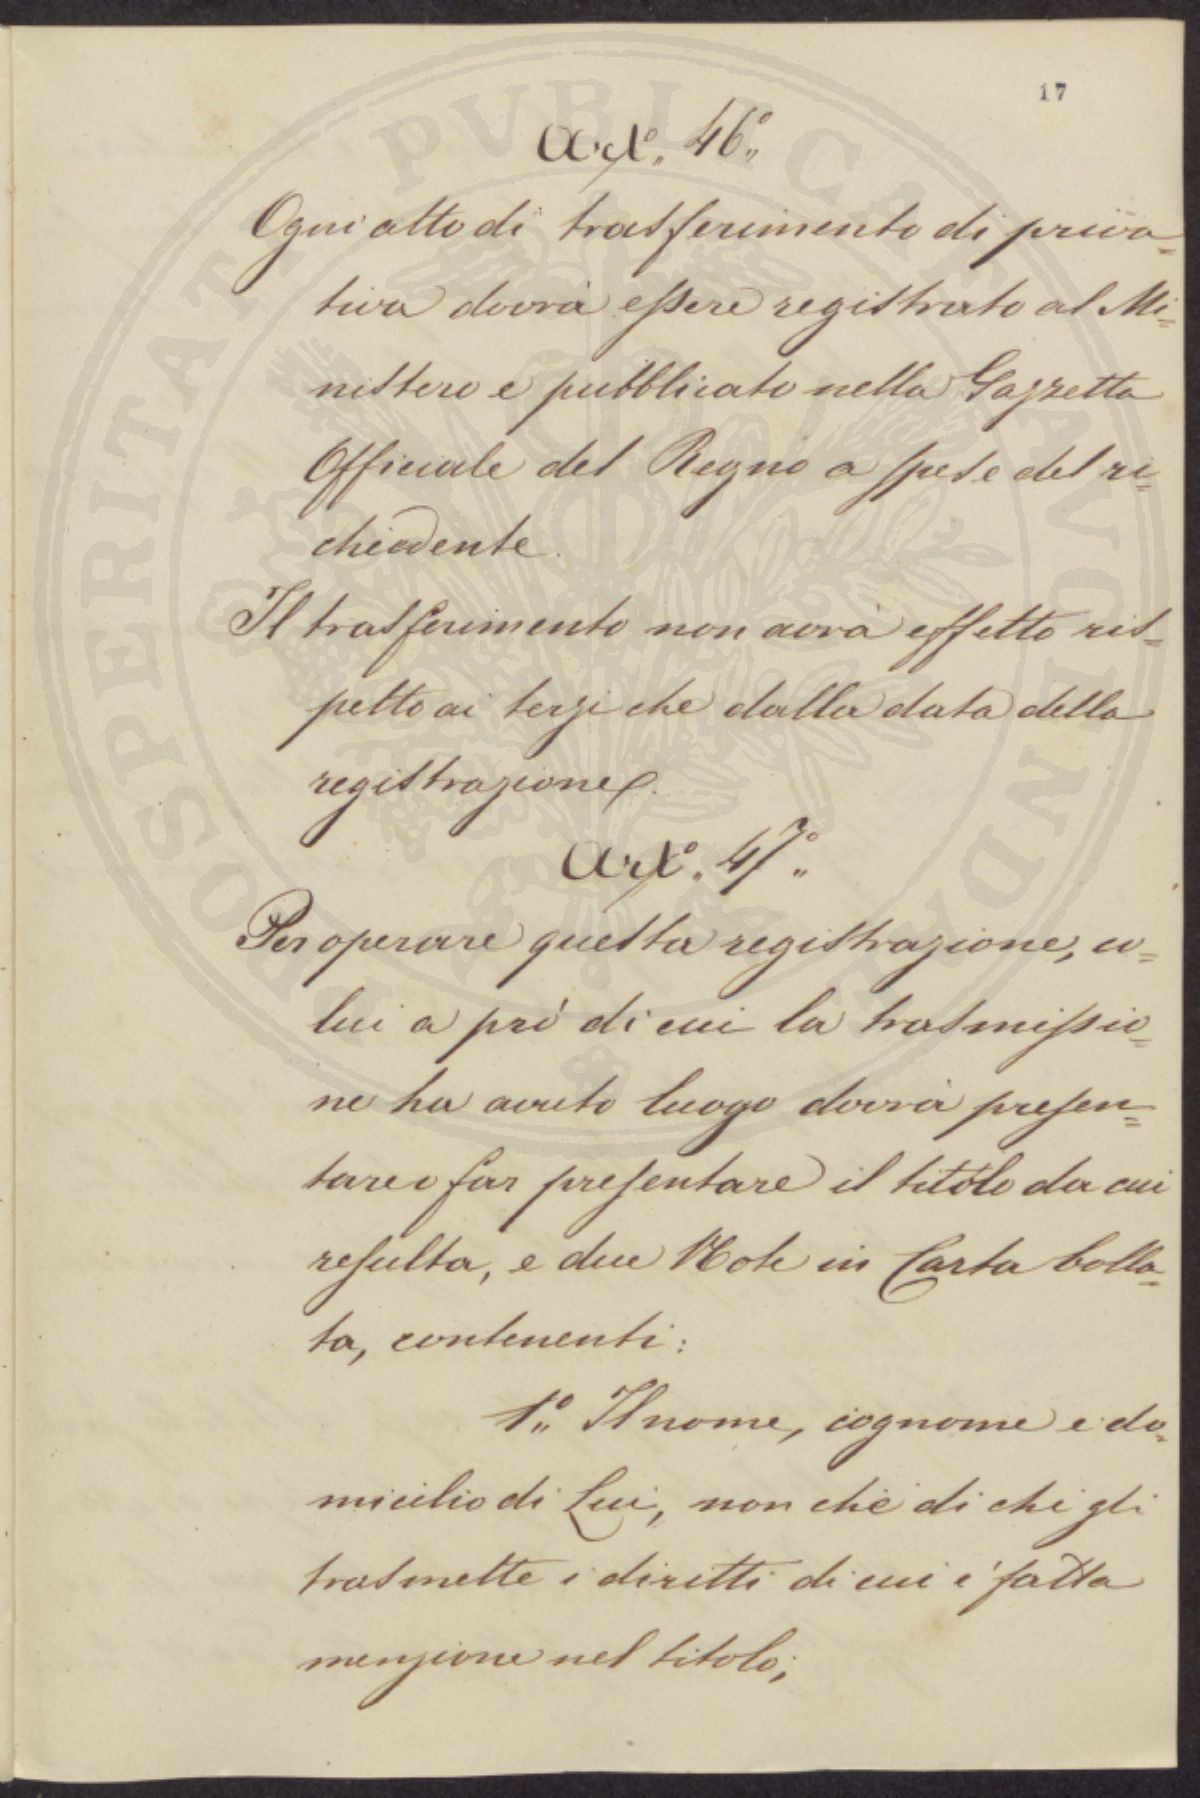 17
Art.° 46.°
Ogni atto di trasferimento di priva=
tiva dovrà essere registrato al Mi=
nistero e pubblicato nella Gazzetta
Officiale del Regno a spese del ri=
chiedente.
Il trasferimento non avrà effetto ris=
petto ai terzi che dalla data della
registrazione.
Art.° 47.°
Per operare questa registrazione, co=
lui a prò di cui la trasmissio=
ne ha avuto luogo dovrà presen=
tare o far presentare il titolo da cui
resulta, e due Note in Carta bolla=
ta, contenenti:
1.° Il nome, cognome e do=
micilio di Lui, non chè di chi gli
trasmette i diritti di cui è fatta
menzione nel titolo;
PROSPERITATI PUBLICAE AVGENDAE